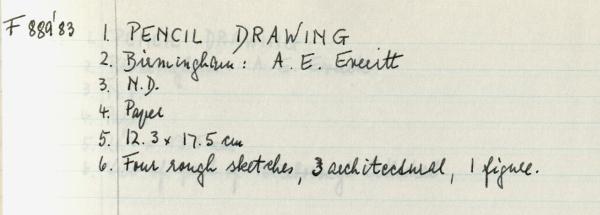 F 889'83 1. PENCIL DRAWING
2. Birmingham: A. E. Everitt
3. N.D.
4. Paper
5. 12.3 x 17.5 cm
6. Four rough sketches, 3 architectural, 1 figure.